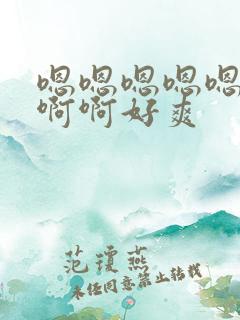 嗯嗯嗯嗯嗯
啊啊好爽
范琼燕
未经同意禁止转载